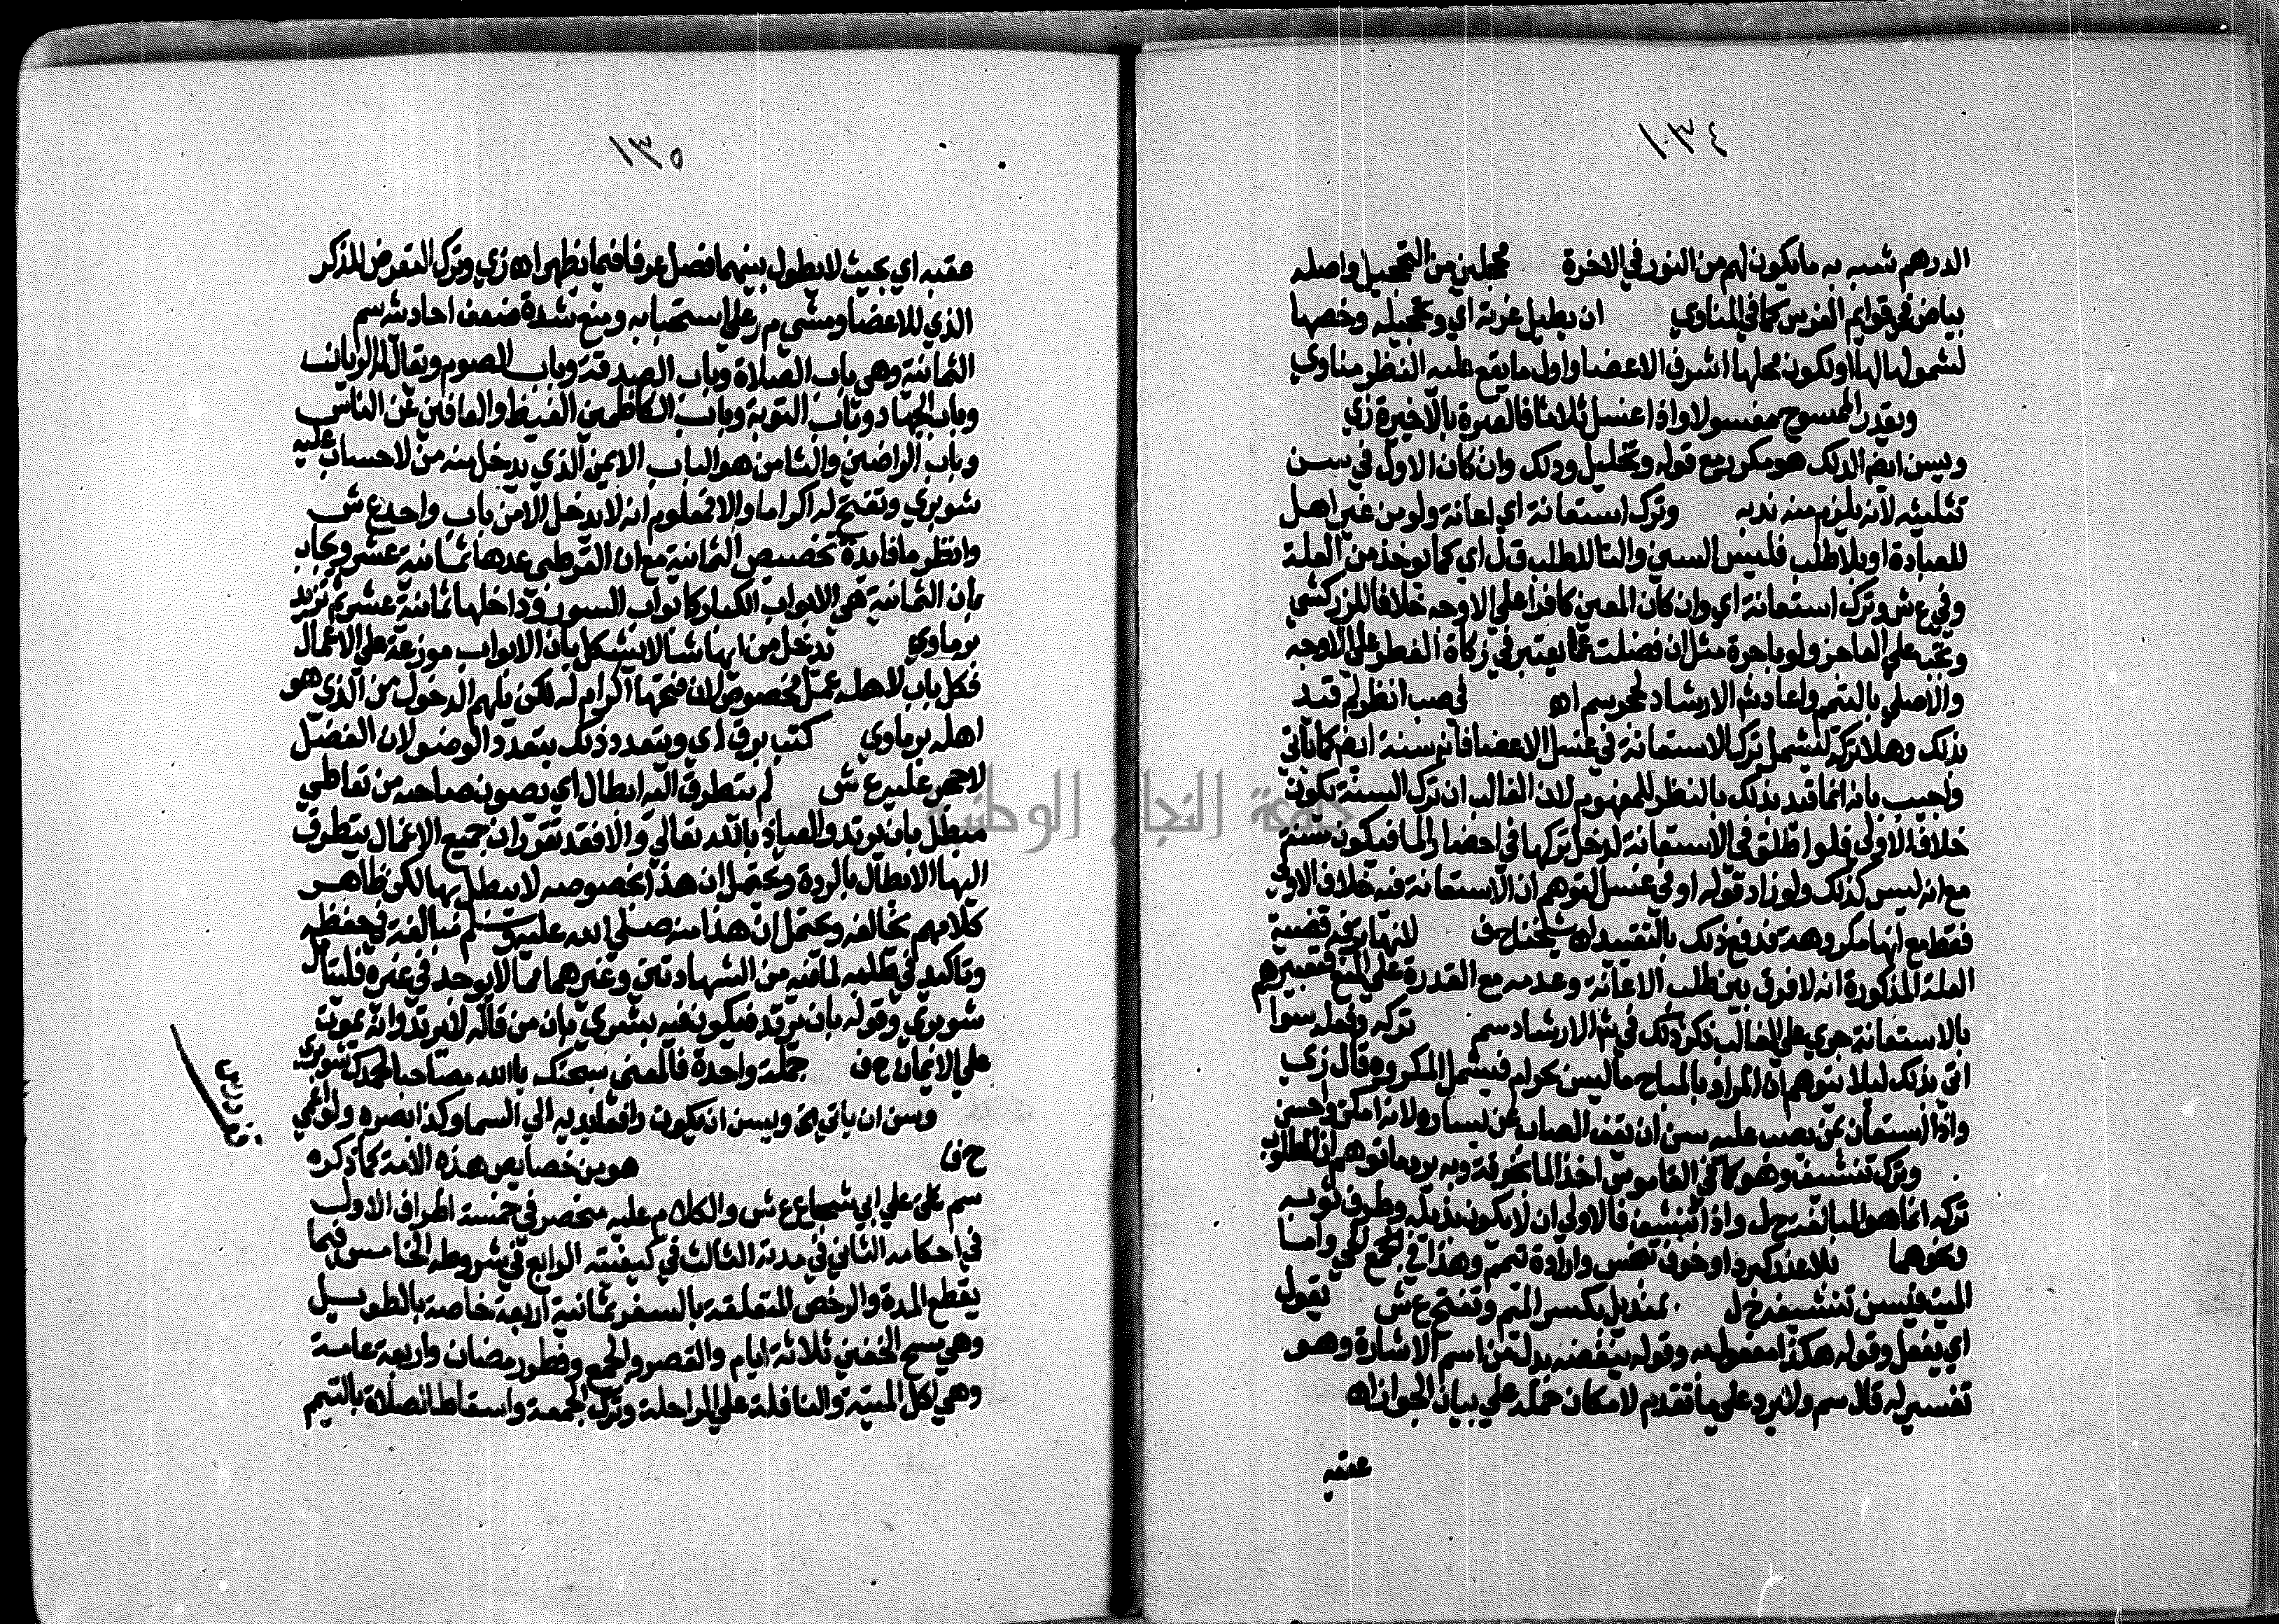 ١٣٤
الدرهم شبه به ما يكون لهم من النور في الاخرة محجلين من التحجيل واصله
بياض في قوايم الفرس كما في المناوي ان يطيل غرته اي وتحجيله وخصها
لشمولها لها او لكون محلها اشرف الاعضا واول ما يقع عليه النظر مناوي
ويقدر الممسوح مغسولا واذا غسل ثلاثا فالعبرة بالاخيرة زي
ويسن ايضا الدلك هو مكرر مع قوله وتخليل ودلك وان كان الاول في سنن
تثليثه لانه يلزم منه ندبه وترك استعانة اي اعانة ولو من غير اهل
للعبادة او بلا طلب فليس السين والتا للطلب ق ل اي كما يوخذ من العلة
وفي ع ش وترك استعانة اي وان كان المعين كافرا على الاوجه خلافا للزركشي
وتجب على العاجز ولو باجرة مثل ان فضلت عما يعتبر في زكاة الفطر على الاوجه
والا صلي بالتيمم واعاد شرح الارشاد لحجر سم اه في صب انظر لم قيد
بذلك وهلا تركه ليشمل ترك الاستعانة في غسل الاعضا فانه سنة ايضا كما ياتي
واجيب بانه انما قيد بذلك بالنظر للمفهوم لان الغالب ان ترك السنة يكون
خلاف الاولى فلو اطلق في الاستعانة لدخل تركها في احضار الما فيكون سنة
مع انه ليس كذلك ولو زاد قوله او في غسل لتوهم ان الاستعانة فيه خلاف الاولى
فقط مع انها مكروهة فدفع ذلك بالتقييد اه شيخنا ح ف لانها ترفه قضية
العلة المذكورة انه لا فرق بين طلب الاعانة وعدمه مع القدرة على المنع فتعبيرهم
بالاستعانة جري على الغالب ذكر ذلك في شرح الارشاد سم تركه وفعله سوا
اتى بذلك ليلا يتوهم ان المراد بالمباح ما ليس بحرام فيشمل المكروه قال زي
واذا استعان بمن يصب عليه سن ان يقف الصاب عن يساره لانه امكن واحسن
وترك تنشيف وهو كما في القاموس اخذ الما بخرقة وبه يرد ما توهم ان المطلوب
تركه انما هو المبالغة ح ل واذا تنشف فالاولى ان لا يكون بذيله وطرف ثوبه
ونحوهما بلا عذر كبرد او خوف نجس وارادة تيمم وهذا في الحي واما
الميت فيسن تنشيفه ح ل بمنديل بكسر الميم وتفتح ع ش يقول
اي يفعل وقوله هكذا مفعوله وقوله ينفضه بدل من اسم الاشارة وهو
تفسير له قلا سم ولا يرد على ما تقدم لامكان حمله على بيان الجواز اه
عقبه
١٣٥
عقبه اي بحيث لا يطول بينهما فصل عرفا فيما يظهر اه زي وترك التعرض للذكر
الذي للاعضا ومشى م ر على استحبابه ومنع شدة ضعف احاديثه سم
الثمانية وهي باب الصلاة وباب الصدقة وباب الصوم ويقال له الريان
وباب الجهاد وباب التوبة وباب الكاظمين الغيظ والعافين عن الناس
وباب الراضين والثامن هو الباب الايمن الذي يدخل منه من لا حساب عليه
شوبري وتفتح له اكراما والا فمعلوم انه لا يدخل الا من باب واحد ع ش
وانظر ما فايدة تخصيص الثمانية مع ان القرطبي عدها ثمانية عشر ويجاب
بان الثمانية هي الابواب الكبار كابواب السور وداخلها ثمانية عشر ثم تزيد
برماوي يدخل من ايها شا لا يشكل بان الابواب موزعة على الاعمال
فكل باب لاهله عمل مخصوص لان فتحها اكرام له لكن يلهم الدخول من الذي هو
اهله برماوي كتب برق اي ويتعدد ذلك بتعدد الوضو لان الفضل
لا حجر عليه ع ش لم يتطرق اليه ابطال اي يصون صاحبه من تعاطي
مبطل بان يرتد والعياذ بالله تعالى والا فقد تقرر ان جميع الاعمال يتطرق
اليها الابطال بالردة ويحتمل ان هذا بخصوصه لا يبطل بها لكن ظاهر
كلامهم يخالفه ويحتمل ان هذا منه صلى الله عليه وسلم مبالغة في حفظه
وتاكيد في طلبه لما فيه من الشهادتين وغيرهما مما لا يوجد في غيره فليتامل
شوبري وقوله بان يرتد فيكون فيه بشرى بان من قاله لا يرتد وانه يموت
على الايمان ح ف جملة واحدة فالمعنى سبحنك يا الله مصاحبا لحمدك شوبري
وسن ان ياتي به ويسن ان يكون رافعا يديه الى السما وكذا بصره ولو اعمى
ح ف هو من خصايص هذه الامة كما ذكره
سم على ابي شجاع ع ش والكلام عليه منحصر في خمسة اطراف الاول
في احكامه الثاني في مدته الثالث في كيفيته الرابع في شروطه الخامس فيما
يقطع المدة والرخص المتعلقة بالسفر ثمانية اربعة خاصة بالطويل
وهي مسح الخفين ثلاثة ايام والقصر والجمع وفطر رمضان واربعة عامة
وهي اكل الميتة والنافلة على الراحلة وترك الجمعة واسقاط الصلاة بالتيمم
جامعة النجاح الوطنية